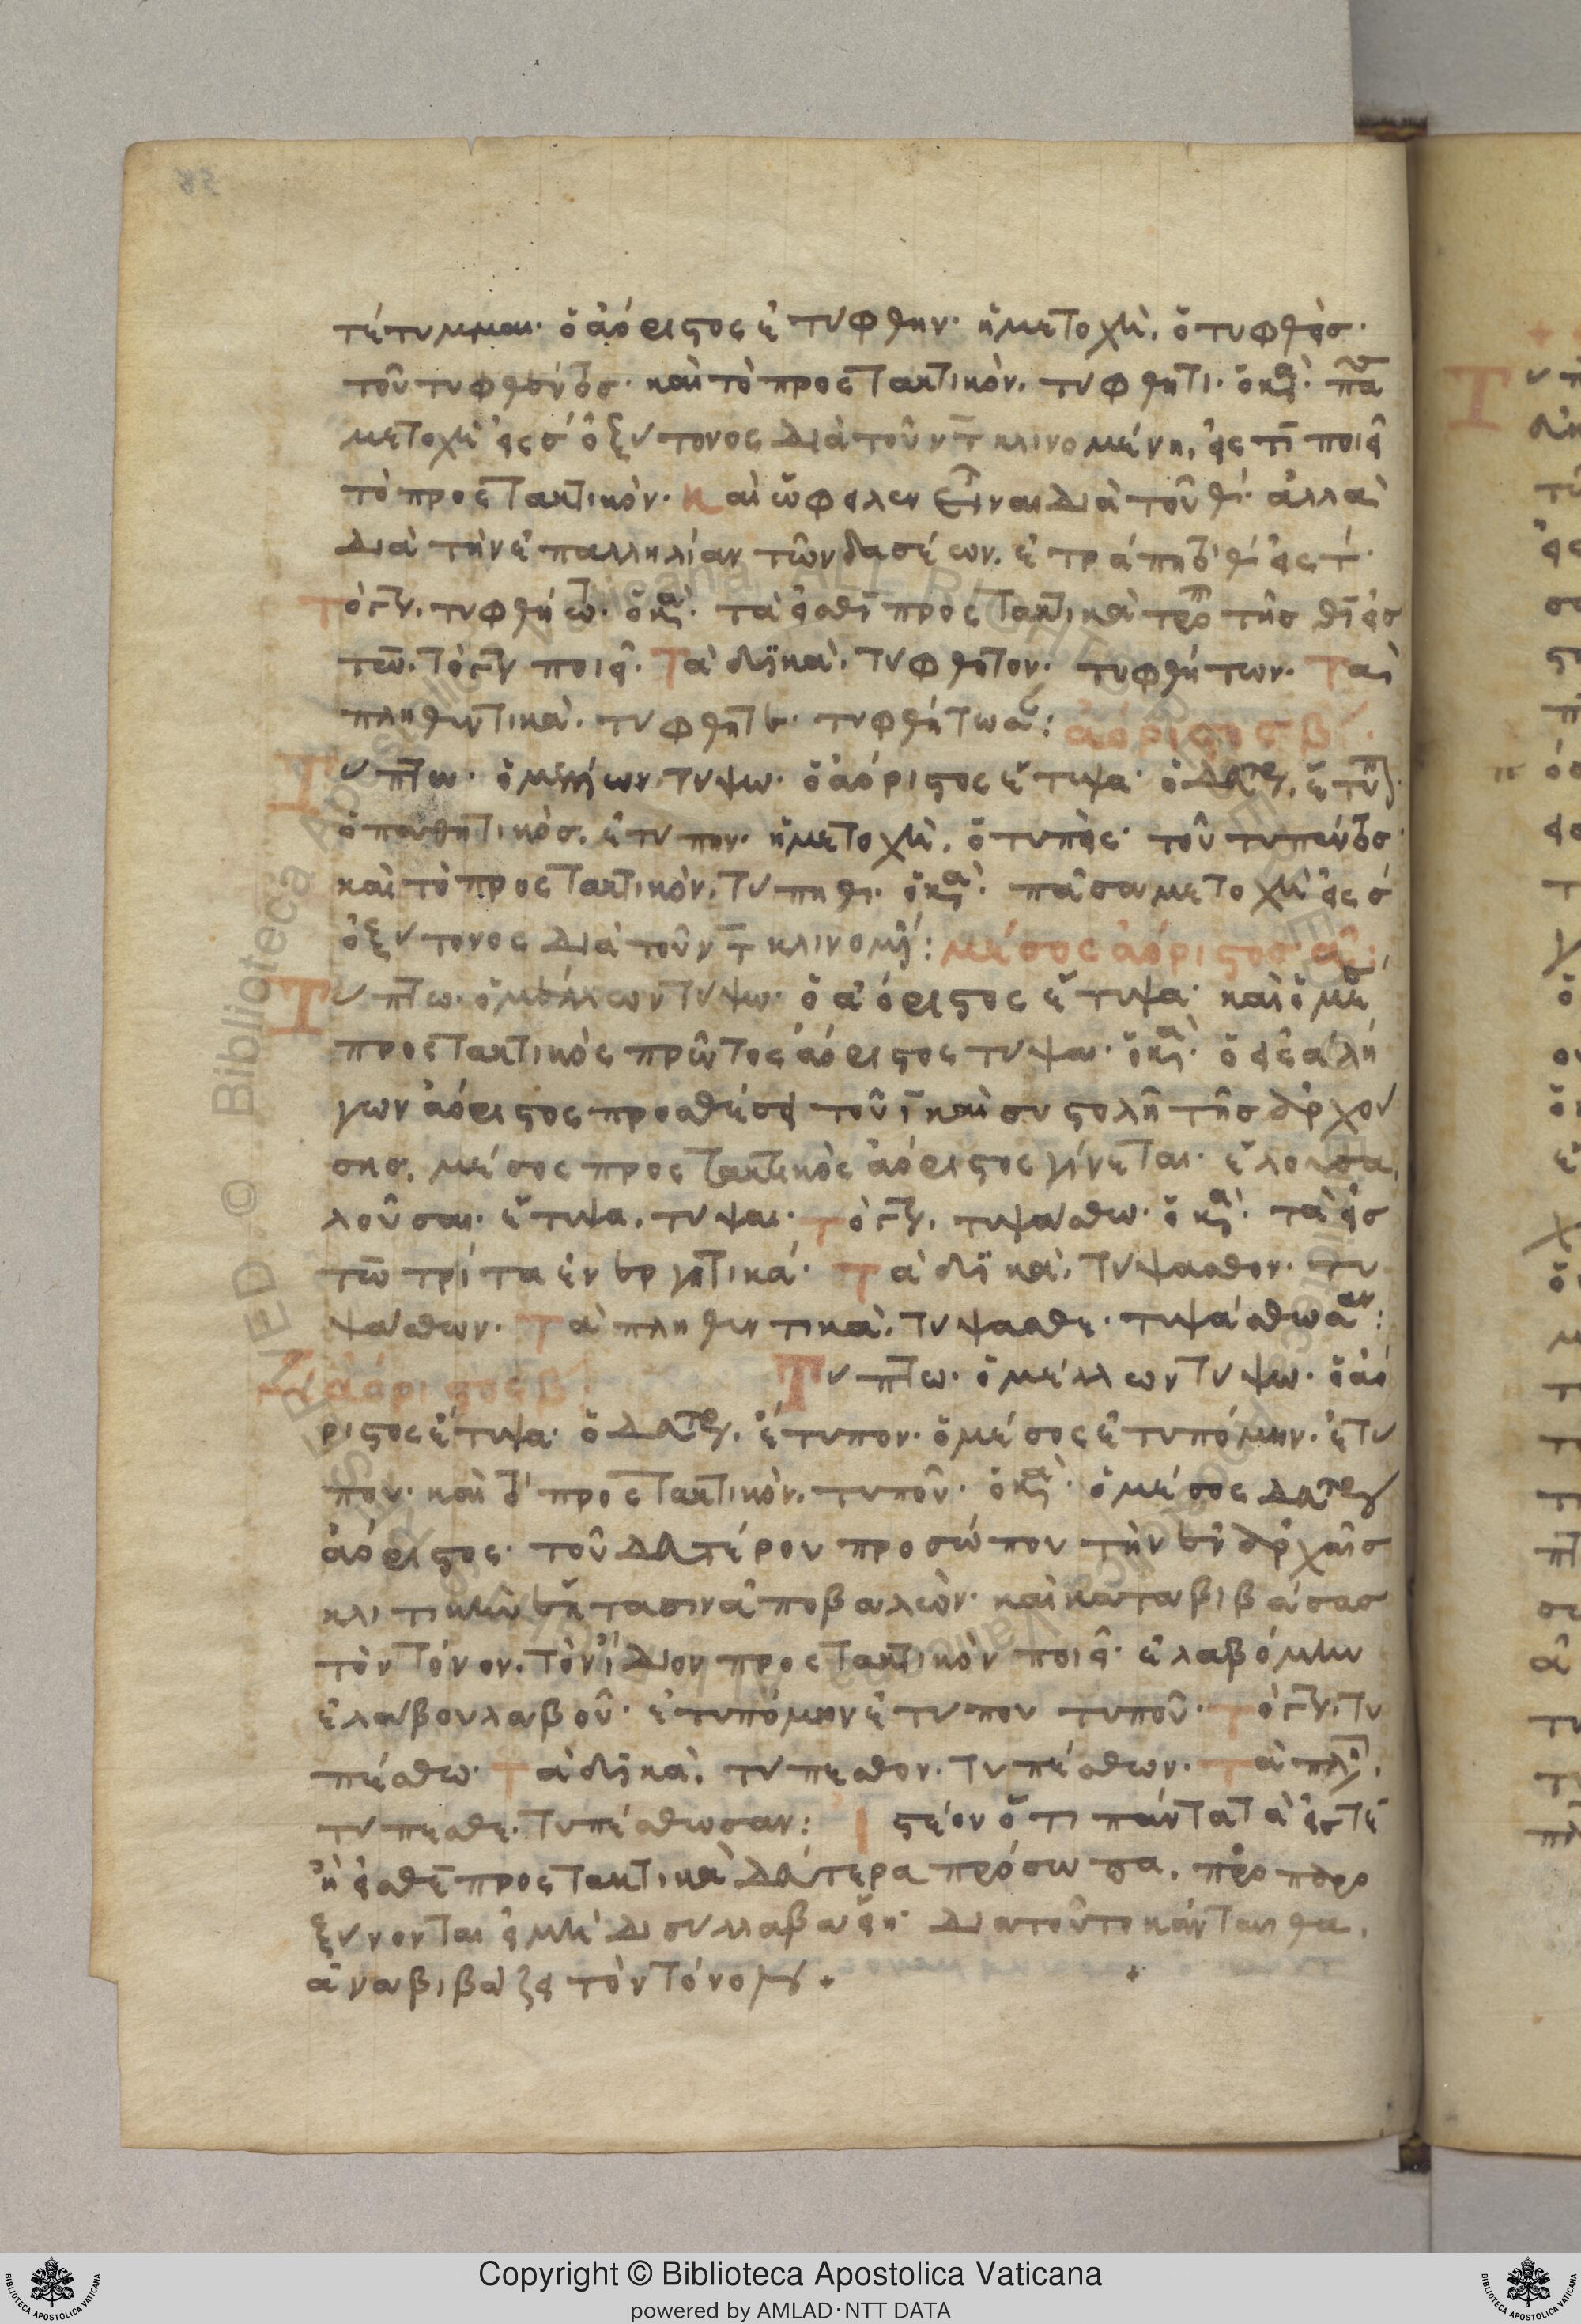 τέτυμμαι· ὁ ἀόριστος ἐτύφθην· ἡ μετοχὴ, ὁ τυφθεὶς·
τοῦ τυφθέντος· καὶ τὸ προστακτικὸν, τύφθητι·
μετοχὴ εἰς σ ὀξύτονος διὰ τοῦ ντ κλινομένη, εἰς τι ποιεῖ
τὸ προστακτικὸν· καὶ ὤφειλεν εἶναι διὰ τοῦ θι· ἀλλὰ
διὰ τὴν ἐπαλληλίαν τῶν δασέων, ἐτράπη τὸ θ εἰς τ·
τυφθήτω· τὰ εἰς θι προστακτικὰ τῆς θι εἰς
τω· ποιεῖ· Τὰ δυϊκὰ, τύφθητον· τυφθήτων· Τὰ
πληθυντικὰ, τύφθητε· τυφθήτωσαν: ἀόριστος β
Τύπτω· ὁ μέλλων τύψω· ὁ ἀόριστος ἔτυψα· ὁ δεύτερος, ἔτυπον·
ὁ παθητικὸς, ἐτύπην· ἡ μετοχὴ, ὁ τυπεὶς· τοῦ τυπέντος·
καὶ τὸ προστακτικὸν, τύπηθι· πᾶσα μετοχὴ εἰς σ
ὀξύτονος διὰ τοῦ ντ κλινομένη: μέσος ἀόριστος α:
Τύπτω· ὁ μέλλων τύψω· ὁ ἀόριστος ἔτυψα· καὶ ὁ μέσος
προστακτικὸς πρῶτος ἀόριστος τύψαι· ὁ εἰς α λή
γων ἀόριστος προσθέσει τοῦ ι καὶ συστολῆ τῆς ἀρχού
σης, μέσος προστακτικὸς ἀόριστος γίνεται· ἔλουσα,
λοῦσαι· ἔτυψα, τύψαι· τυψάσθω· τὰ εἰς
τω τρίτα ἐνεργητικά· Τὰ δυϊκὰ, τύψασθον· τυ
ψάσθων· Τὰ πληθυντικὰ, τύψασθε· τυψάσθωσαν:
ἀόριστος β: Τύπτω· ὁ μέλλων τύψω· ὁ ἀό
ριστος ἔτυψα· ὁ δεύτερος, ἔτυπον· ὁ μέσος ἐτυπόμην· ἐτύ
που· καὶ τὸ προστακτικὸν, τυποῦ· ὁ μέσος δεύτερος
ἀόριστος· τοῦ δευτέρου προσώπου τὴν ἐν ἀρχαῖς
κλιτικὴν ἔκτασιν ἀποβαλὼν· καὶ καταβιβάσας
τὸν τόνον, τὸν ἴδιον προστακτικὸν ποιεῖ· ἐλαβόμην
ἐλάβου λαβοῦ· ἐτυπόμην ἐτύπου τυποῦ· τυ
πέσθω· Τὰ δυϊκὰ, τύπεσθον· τυπέσθων· Τὰ πληθ,
τύπεσθε· τυπέσθωσαν: Ἰστέον ὅτι πάντα τὰ εἰς τε
ἢ εἰς θε προστακτικὰ δεύτερα πρόσωπα, προπαρο
ξύνονται εἰ μὴ δισύλλαβα εἴη· διὰ τοῦτο κἀνταῦθα,
ἀναβιβάζει τὸν τόνον +
Copyright © Biblioteca Apostolica Vaticana
powered by AMLAD·NTT DATA